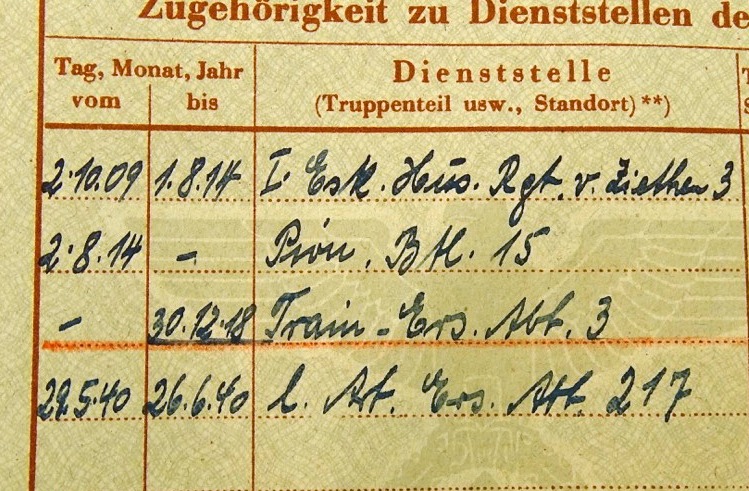 Zugehörigkeit zu Dienststellen de
Tag, Monat, Jahr
vom bis
Dienststelle
(Truppenteil usw., Standort) **)
2.10.09 1.8.14 I. Esk. Hus. Rgt. v. Ziethen 3
2.8.14 - Pion. Btl. 15
- 30.12.18 Train-Ers. Abt. 3
29.5.40 26.6.40 l. Art. Ers. Abt. 217